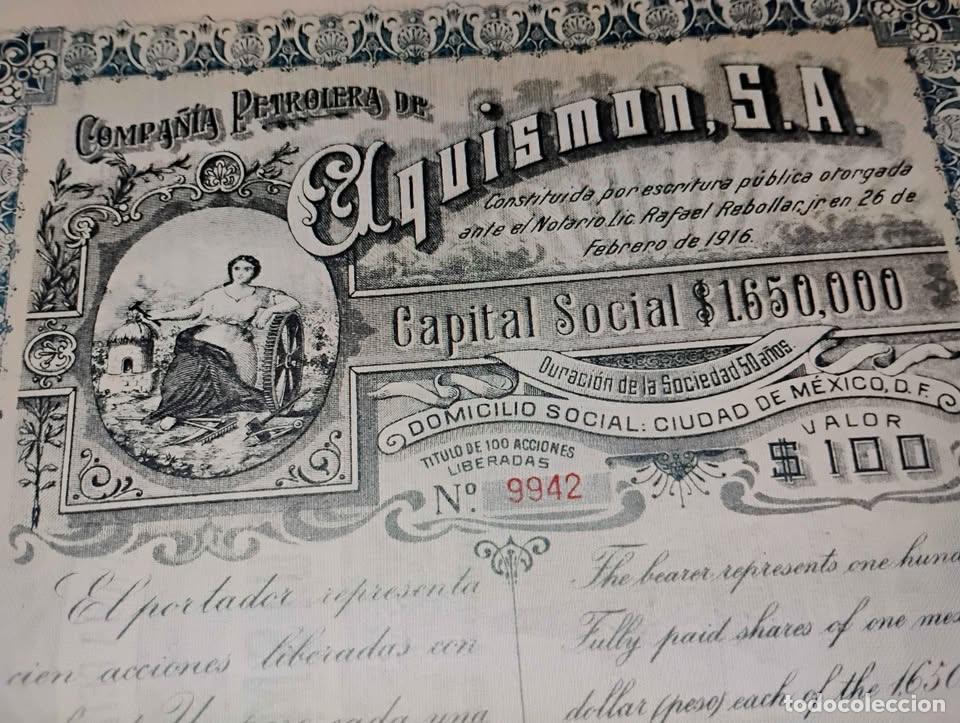 COMPAÑÍA PETROLERA DE
Aquismon, S.A.
Constituida por escritura pública otorgada
ante el Notario Lic. Rafael Rebollar, jr en 26 de
Febrero de 1916.
Capital Social $1.650,000
Duración de la Sociedad 50 años.
DOMICILIO SOCIAL: CIUDAD DE MÉXICO, D. F.
TITULO DE 100 ACCIONES
LIBERADAS
Nº. 9942
VALOR
$100
El portador representa
cien acciones liberadas con
cada una
The bearer represents one hun
Fully paid shares of one mex
dollar (peso) each of the 1.650
todocoleccion